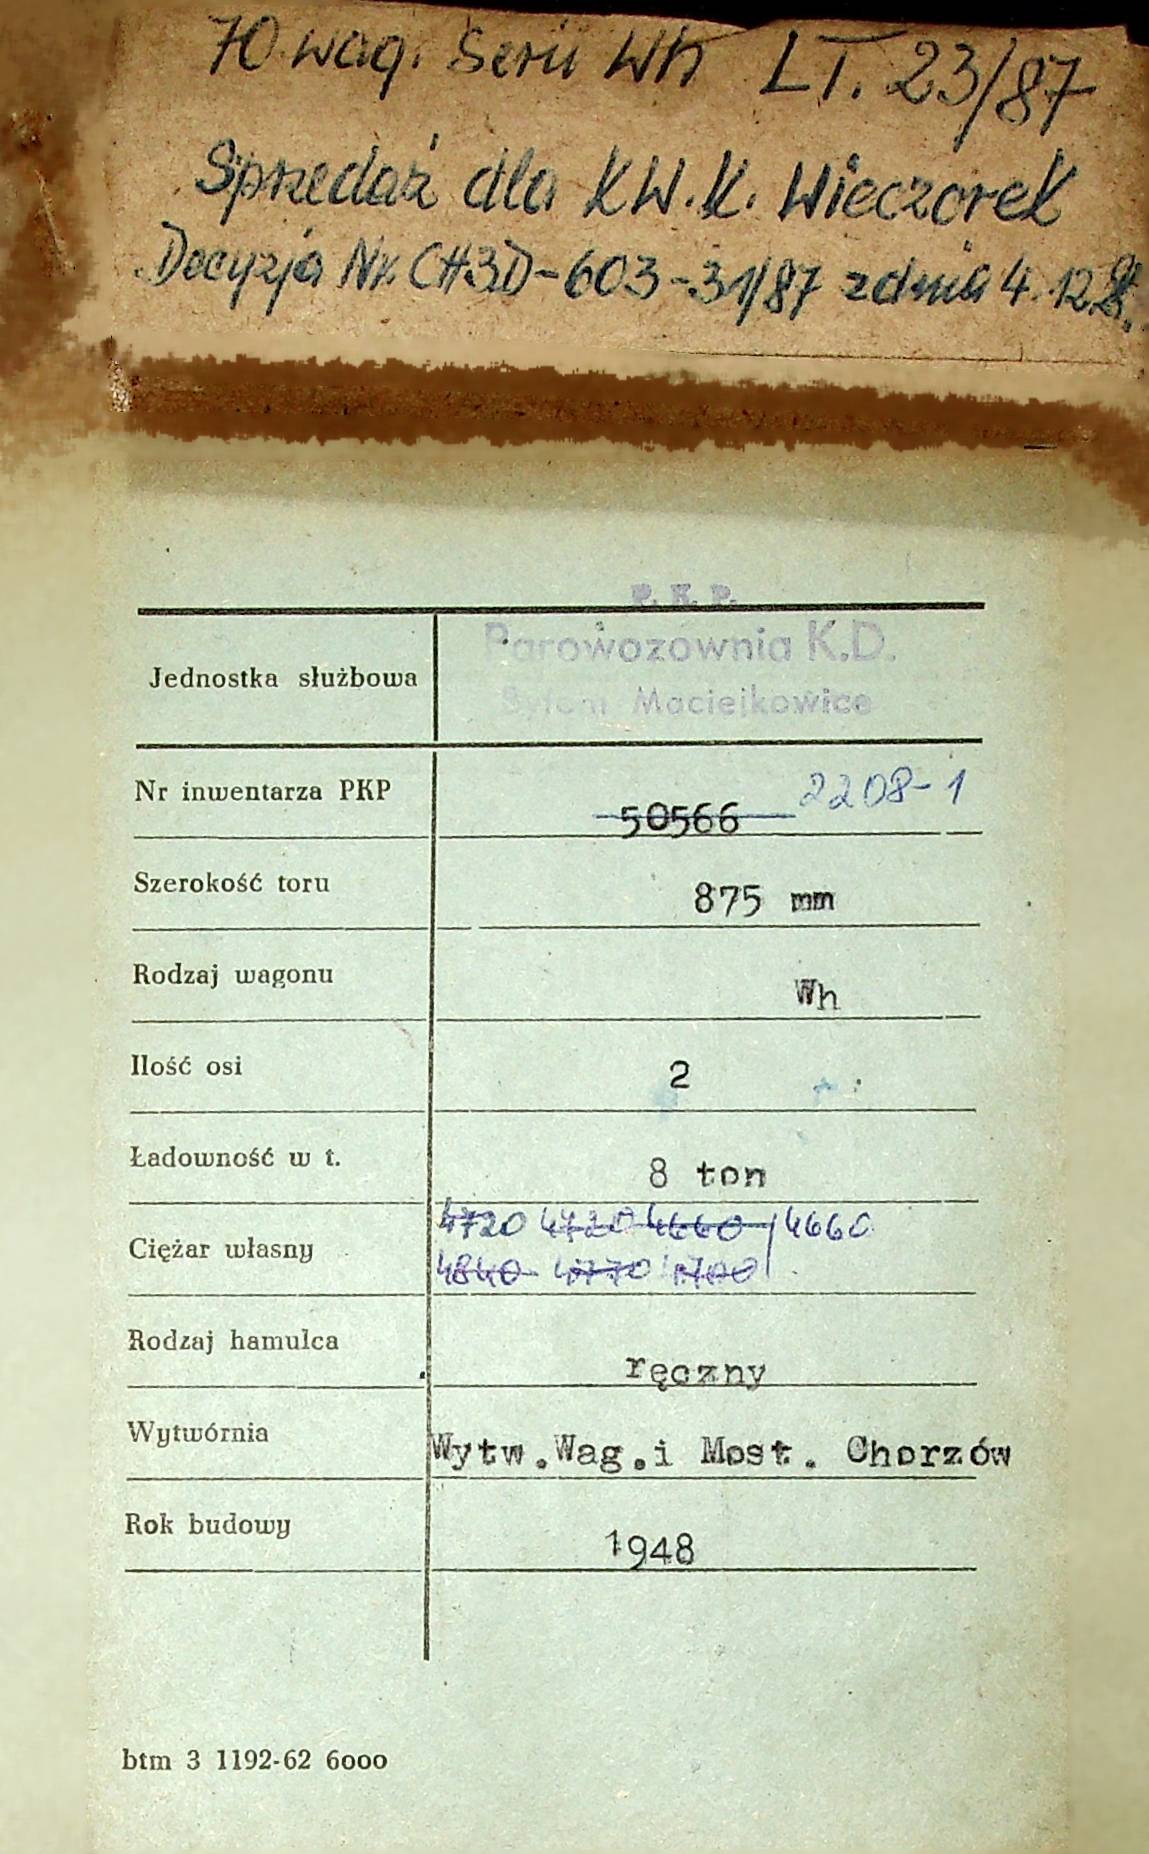 70 wag. Serii Wh LT. 23/87
Sprzedaż dla KW.K. Wieczorek
Decyzja Nr. CH3D-603-31/87 z dnia 4.12.
P. K. P.
Parowozownia K.D.
Jednostka służbowa
Bytom Maciejkowice
Nr inwentarza PKP 50566 2208-1
Szerokość toru 875 mm
Rodzaj wagonu Wh
Ilość osi 2
Ładowność w t. 8 ton
4720 4720 4660 4660
Ciężar własny
4840 4770 4700
Rodzaj hamulca ręczny
Wytwórnia Wytw.Wag.i Most. Chorzów
Rok budowy 1948
btm 3 1192-62 6000